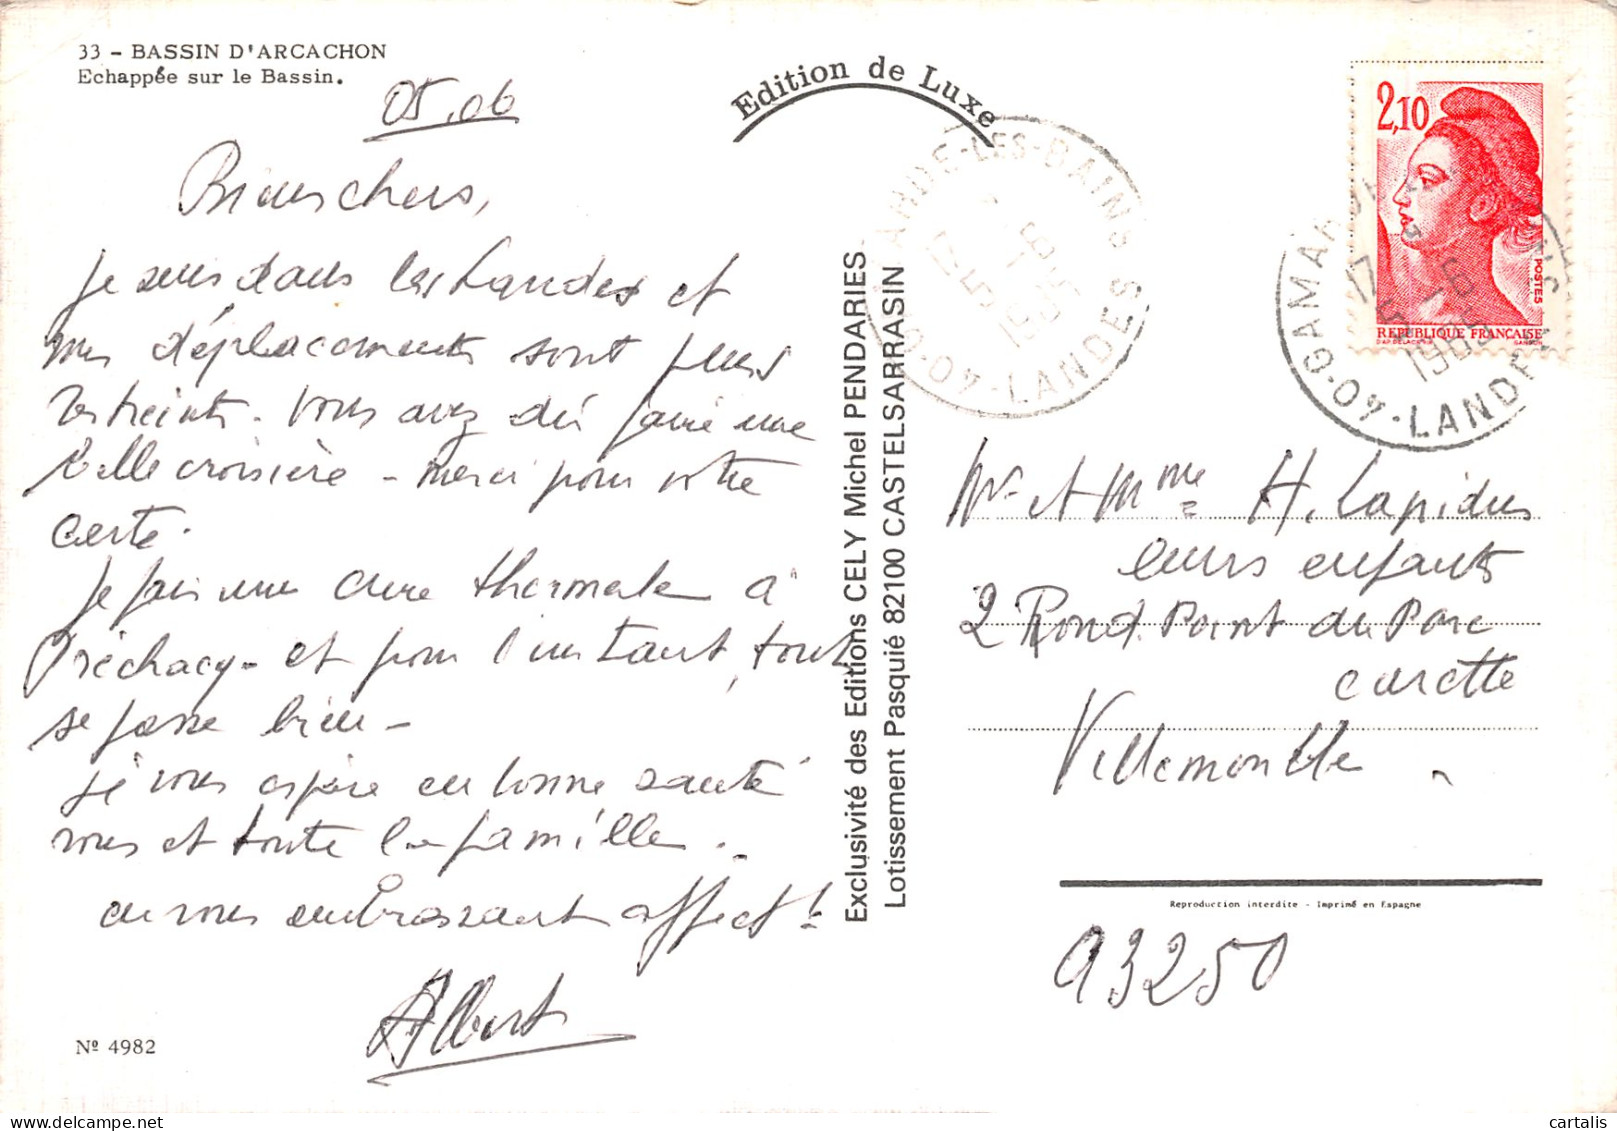 33 - BASSIN D'ARCACHON
Echappée sur le Bassin.
05.06
Bien chers,
Je suis dans les Landes et
mes déplacements sont plus
restreints. Vous avez dû faire une
belle croisière - merci pour votre
carte.
Je fais une cure thermale à
Préchacq - et pour l'instant, tout
se passe bien -
Je vous espère en bonne santé
vous et toute la famille.
en vous embrassant affect.t
Albert
Nº 4982
Edition de Luxe
Exclusivité des Editions CELY Michel PENDARIES
Lotissement Pasquié 82100 CASTELSARRASIN
GAMARDE-LES-BAINS
17 H
5 - 6
40 · LANDES
2,10
POSTES
REPUBLIQUE FRANÇAISE
GAMARDE
17 H
5 - 6
40 · LANDES
Mr et Mme H. Lapidus
leurs enfants
2 Rond. Point du Parc
Carette
Villemomble
Reproduction interdite - Imprimé en Espagne
93250
cartalis